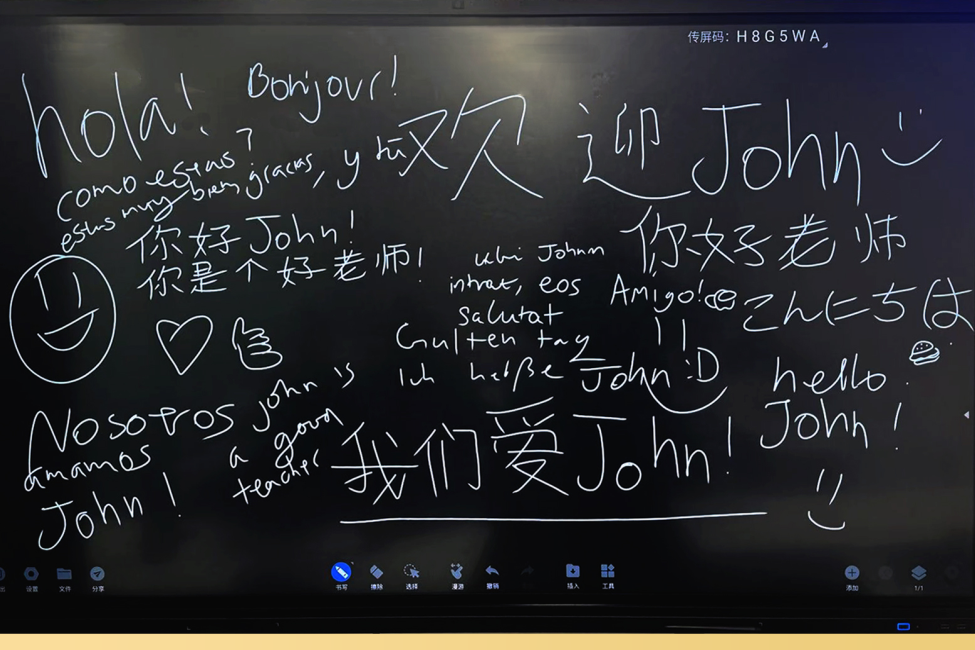 传屏码: H8G5WA
hola!
Bonjour!
欢迎John
como estas?
estas muy bien gracias, y tu
你好John!
你是个好老师!
你好老师
ubi Johnm
intrat, eos
salutat
Amigo!
こんにちは
Guten tag
Ich heiße John :D
hello
John!
Nosotros
amamos
John!
john is
a good
teacher
我们爱John!
设置
文件
分享
书写
擦除
选择
漫游
撤销
插入
工具
添加
1/1